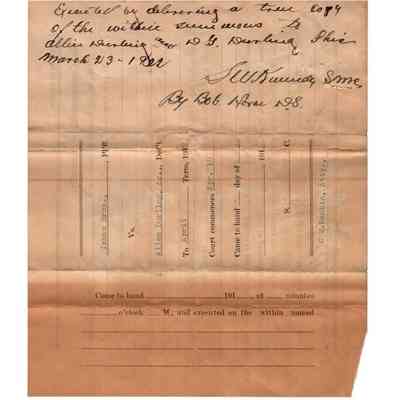 Executed by delivering a true copy
of the within summons to
Allen Durling and D. G. Durling, this
March 23 - 1912
S.W. Kennedy
By Bob Horne D.S.
Jones Bros., Pl'ff.
Vs.
Allen Durling
To April Term, 191
Court commences
Came to hand day of
191
S. C.
Atty.
Came to hand 191 , at minutes
o'clock M., and executed on the within named